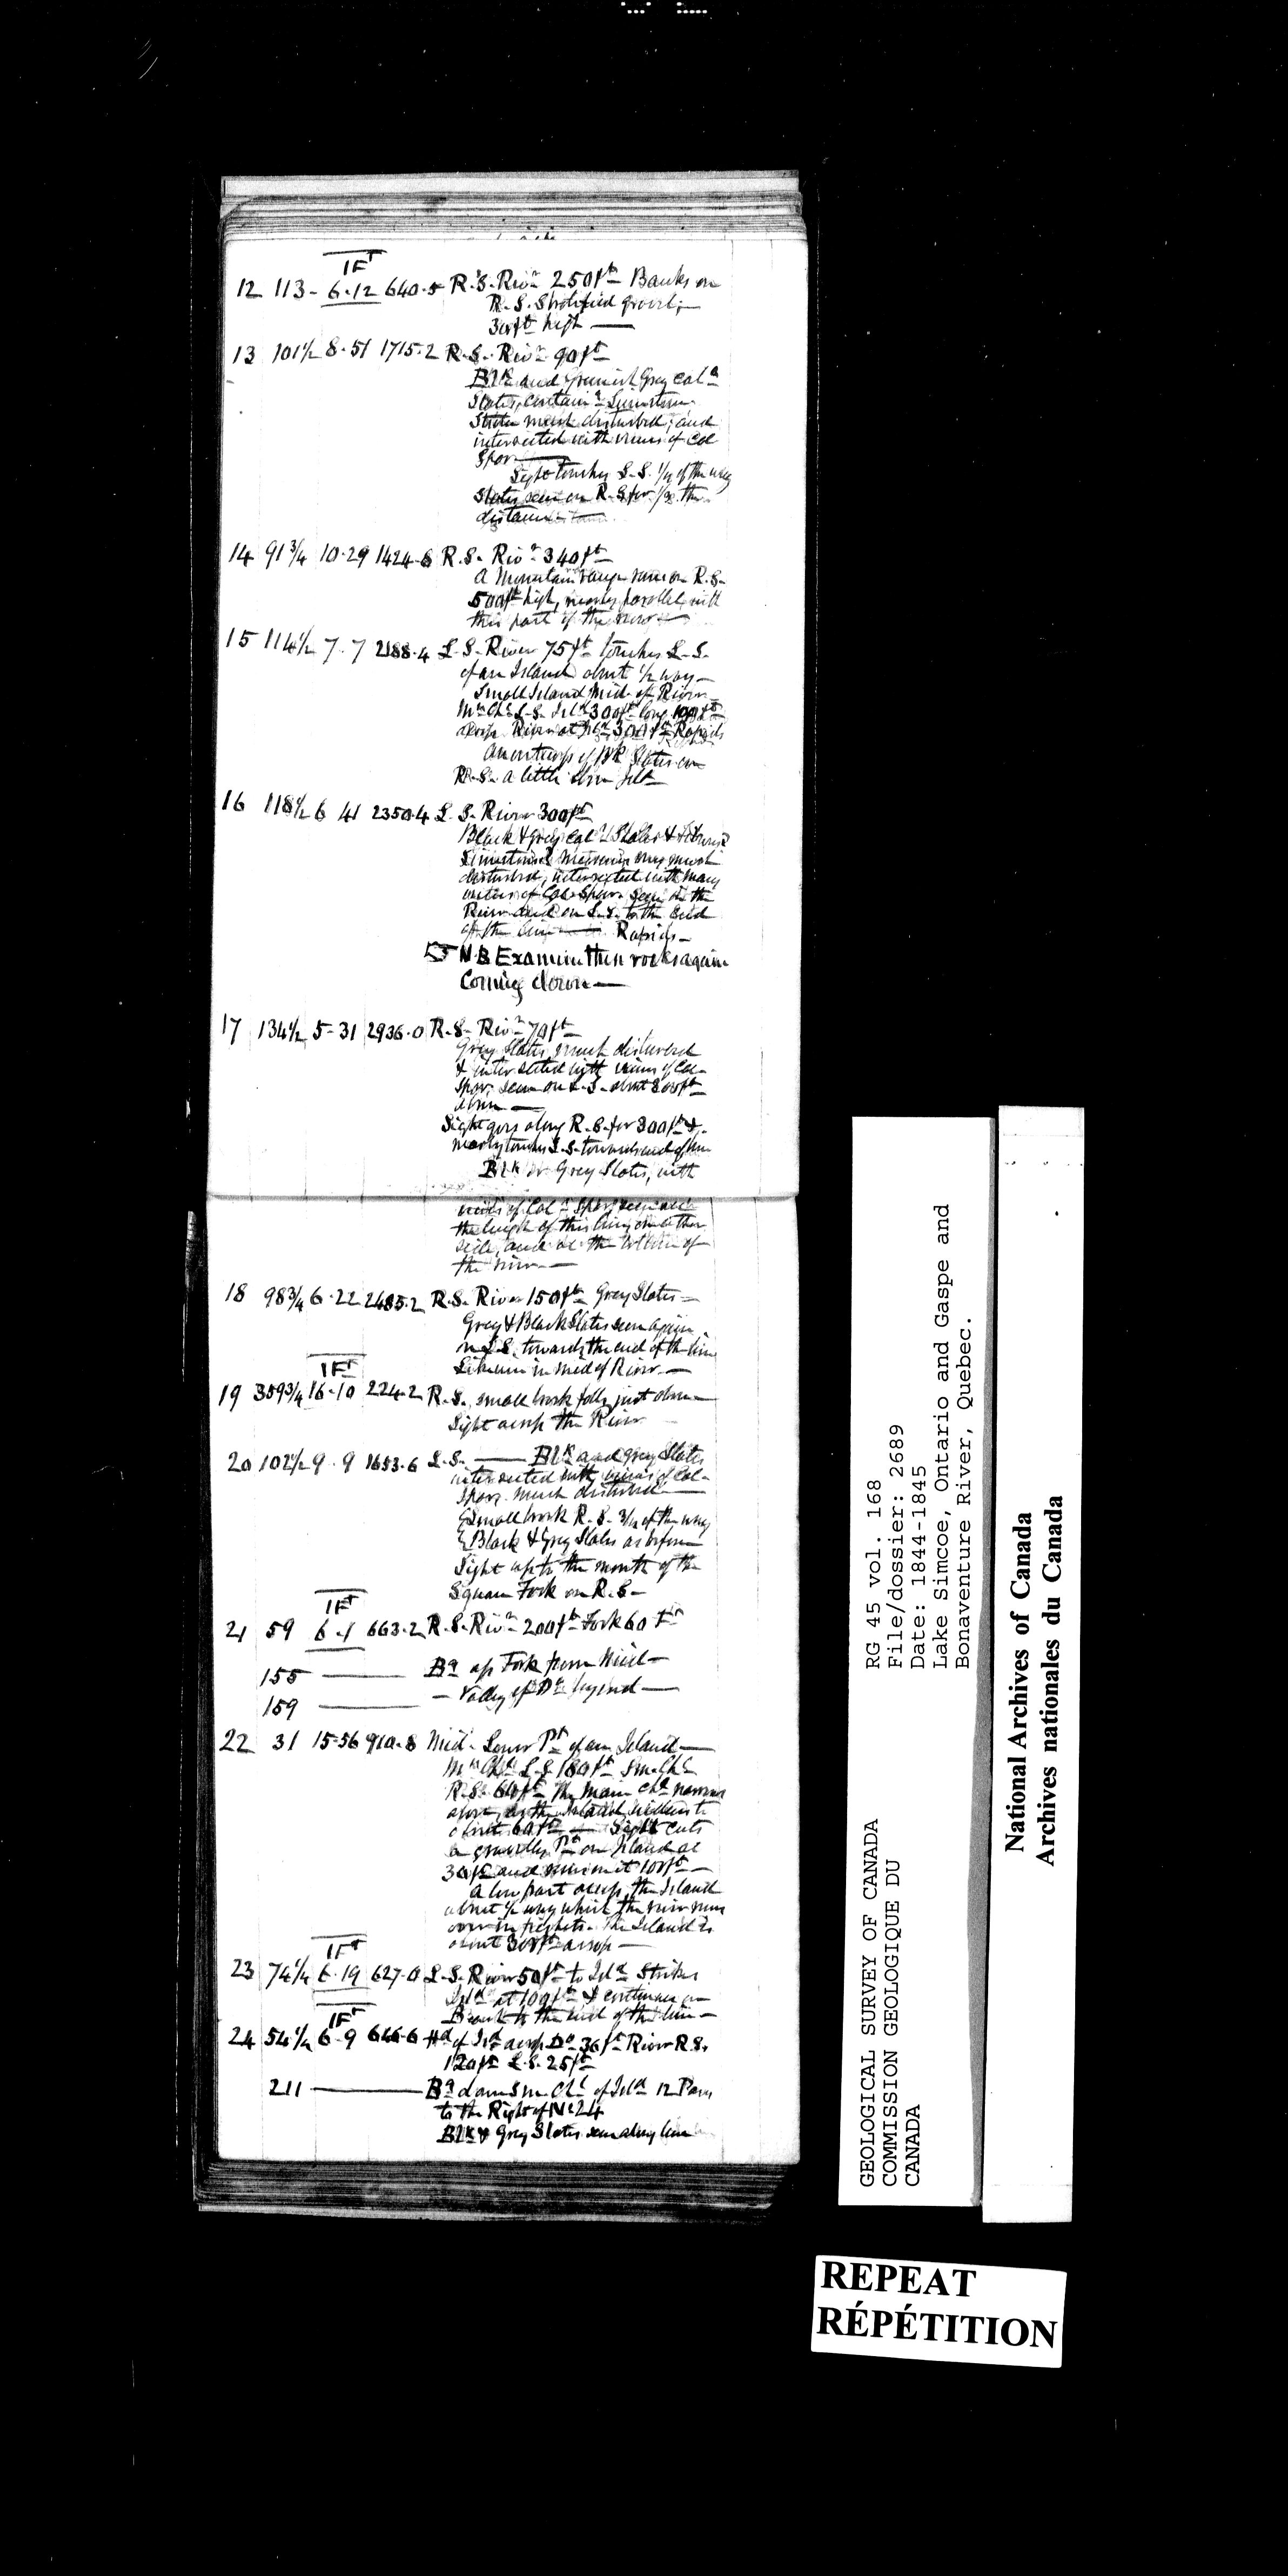 1 F^t
12 113 - 6·12 640·5 R.S. Riv^r 250f^t Banks on
R.S. Stratified gravel,
30f^t high —
13 101½ 8·51 1715·2 R.S. Riv^r 90f^t
Bl^k and Greenish Grey cal^s
Slates, contain^g Limestone
Strata much disturbed, and
intersected with veins of Cal
Spar —
Sight touches L.S. of the way
Slates seen on R.S. for the
distance
14 91¾ 10·29 1424·6 R.S. Riv^r 340f^t
A Mountain range runs on R.S.
500f^t high, nearly parallel with
this part of the river —
15 114½ 7·7 2188·4 L.S. River 75f^t touches L.S.
of an Island about ½ way —
Small Island Mid. of River
M^n Ch^l L.S. Isl^d 300f^t long 100f^t
across River at 300f^t Rapids
An outcrop of Bl^k Slates on
R.S. a little
16 118½ 6 41 2350·4 L.S. River 300f^t
Black & grey Cal^s Slates &
Limestones much
disturbed, intersected with many
veins of Cal Spar. Seen in the
River and on L.S. to the end
of the line — Rapids —
N B Examine these rocks again
Coming down —
17 134½ 5-31 2936·0 R.S. Riv^r 70f^t
Grey Slates, much disturbed
& intersected with veins of Cal-
Spar, seen on L.S. about 800f^t
Sight goes along R.S. for 300f^t &
nearly touches L.S. towards end of line
Bl^k or Grey Slates, with
veins of Cal^s Spar seen all
the length of this line on either
side, and at the bottom of
the river —
18 98¾ 6·22 2485·2 R.S. River 150f^t Grey Slates —
Grey & Black Slates seen again
on L.S. towards the end of the line
Likewise in Mid of River —
1 F^t
19 359¾ 16·10 224·2 R.S. small brook falls just
Sight across the River
20 102½ 9·9 1653·6 L.S. — Bl^k and grey Slates
intersected with veins of Cal-
Spar. much disturbed —
Small brook R.S. of the way
Black & Grey Slates as before
Sight up to the mouth of the
Square Fork on R.S. —
1 F^t
21 59 6·1 663·2 R.S. Riv^r 200f^t Fork 60 F^t
155 — B^g up Fork from Mid —
159 — Valley of D^o beyond —
22 31 15·56 910·8 Mid. Lower P^t of an Island —
M^n Ch^l L.S. 180f^t Sm. Ch^l
R.S. 60f^t The main Ch^l narrows
above, as the Island widens to
about 60f^t — Sight cuts
a gravelly P^t on Island at
30f^t and runs on it 100f^t —
A low part across the Island
about ½ way which the river runs
over in freshets. The Island is
about 300f^t across —
1 F^t
23 74¼ 6·19 627·0 L.S. River 50f^t to Isl^d Strikes
Isl^d at 100f^t & continues on
Beach to the end of the line —
1 F^t
24 54¼ 6·9 646·6 H^d of Isl^d across D^o 36f^t River R.S.
120f^t L.S. 25f^t
211 — B^g down Sm. Ch^l of Isl^d 12 Paces
to the Right of N^o 24
Bl^k & Grey Slates seen along line
RG 45 vol. 168
File/dossier: 2689
Date: 1844-1845
Lake Simcoe, Ontario and Gaspe and
Bonaventure River, Quebec.
GEOLOGICAL SURVEY OF CANADA
COMMISSION GEOLOGIQUE DU
CANADA
National Archives of Canada
Archives nationales du Canada
REPEAT
RÉPÉTITION